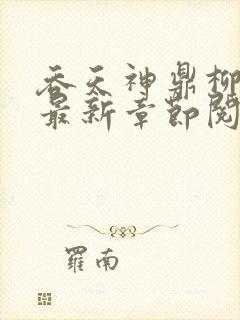 吞天神鼎柳
最新章節閱
羅南